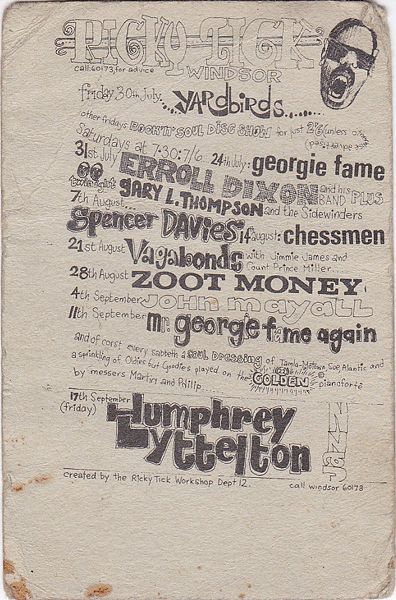 RICKY TICK
call 60173 for advice
WINDSOR
friday 30th July..... YARDBIRDS.....
other fridays ROCK'N'SOUL DISC SHOW for just 2'6 (unless
Saturdays at 7.30: 7/6.
31st July ERROLL DIXON and his BAND PLUS
24th July: georgie fame
GARY L. THOMPSON and the Sidewinders
7th August...
Spencer DAVIES; 14 August: chessmen
21st August Vagabonds with Jimmie James and
Count Prince Miller...
28th August ZOOT MONEY
4th September john mayall
11th September Mr. georgie fame again
and of corst every sabbath a SOUL DRESSING of Tamla Motown, Sue, Atlantic and
a sprinkling of Oldies but Goodies played on the GOLDEN pianoforte
by messers Martin and Philip....
17th September
(friday) Humphrey
Lyttelton
Jazz
created by the Ricky Tick Workshop Dept 12.
call windsor 60173